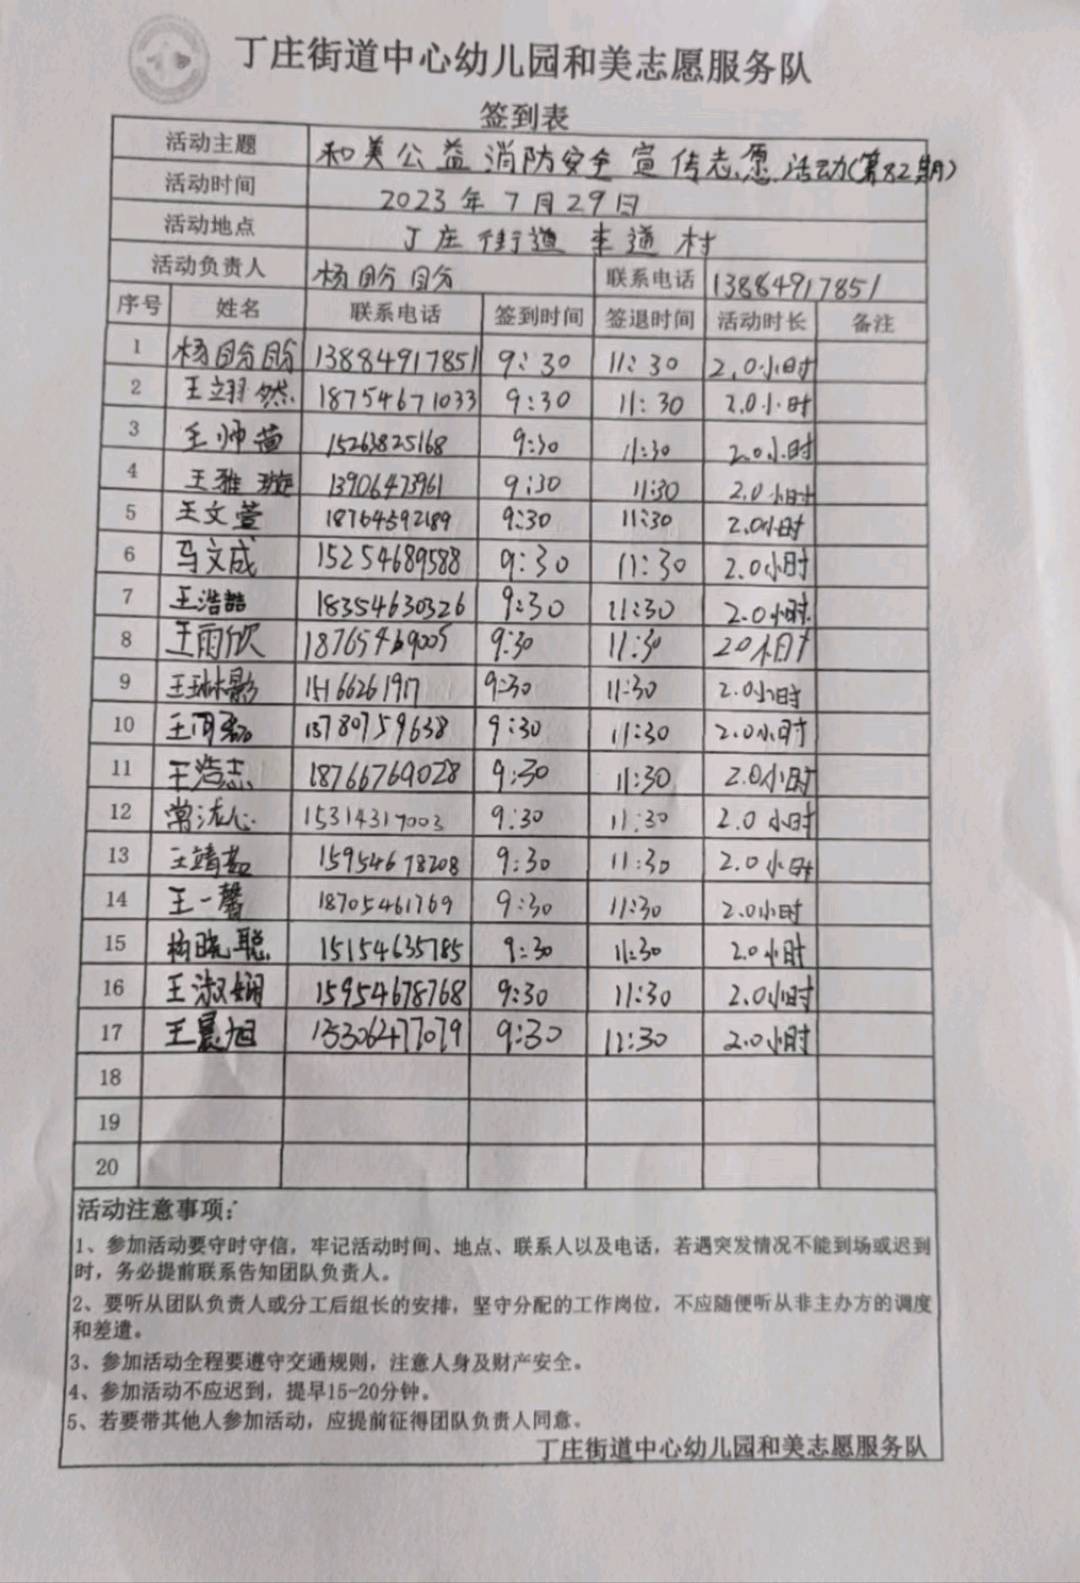 丁庄街道中心幼儿园和美志愿服务队
签到表
活动主题 和美公益消防安全宣传志愿活动(第82期)
活动时间 2023年7月29日
活动地点 丁庄街道 村
活动负责人 杨盼盼 联系电话 13884917851
序号 姓名 联系电话 签到时间 签退时间 活动时长 备注
1 杨盼盼 13884917851 9:30 11:30 2.0小时
2 王翊然 18754671033 9:30 11:30 2.0小时
3 王帅茵 15263825168 9:30 11:30 2.0小时
4 王雅璇 13906473961 9:30 11:30 2.0小时
5 王文萱 18764592189 9:30 11:30 2.0小时
6 马文成 15254689588 9:30 11:30 2.0小时
7 王浩喆 18354630326 9:30 11:30 2.0小时
8 王雨欣 18765469005 9:30 11:30 2.0小时
9 王琳影 15166261917 9:30 11:30 2.0小时
10 13780759638 9:30 11:30 2.0小时
11 王浩志 18766769028 9:30 11:30 2.0小时
12 15314317003 9:30 11:30 2.0小时
13 15954678208 9:30 11:30 2.0小时
14 王一馨 18705461769 9:30 11:30 2.0小时
15 杨晓聪 15154635785 9:30 11:30 2.0小时
16 王淑娴 15954678768 9:30 11:30 2.0小时
17 王晨旭 15306477079 9:30 11:30 2.0小时
18
19
20
活动注意事项:
1、参加活动要守时守信，牢记活动时间、地点、联系人以及电话，若遇突发情况不能到场或迟到
时，务必提前联系告知团队负责人。
2、要听从团队负责人或分工后组长的安排，坚守分配的工作岗位，不应随便听从非主办方的调度
和差遣。
3、参加活动全程要遵守交通规则，注意人身及财产安全。
4、参加活动不应迟到，提早15-20分钟。
5、若要带其他人参加活动，应提前征得团队负责人同意。
丁庄街道中心幼儿园和美志愿服务队